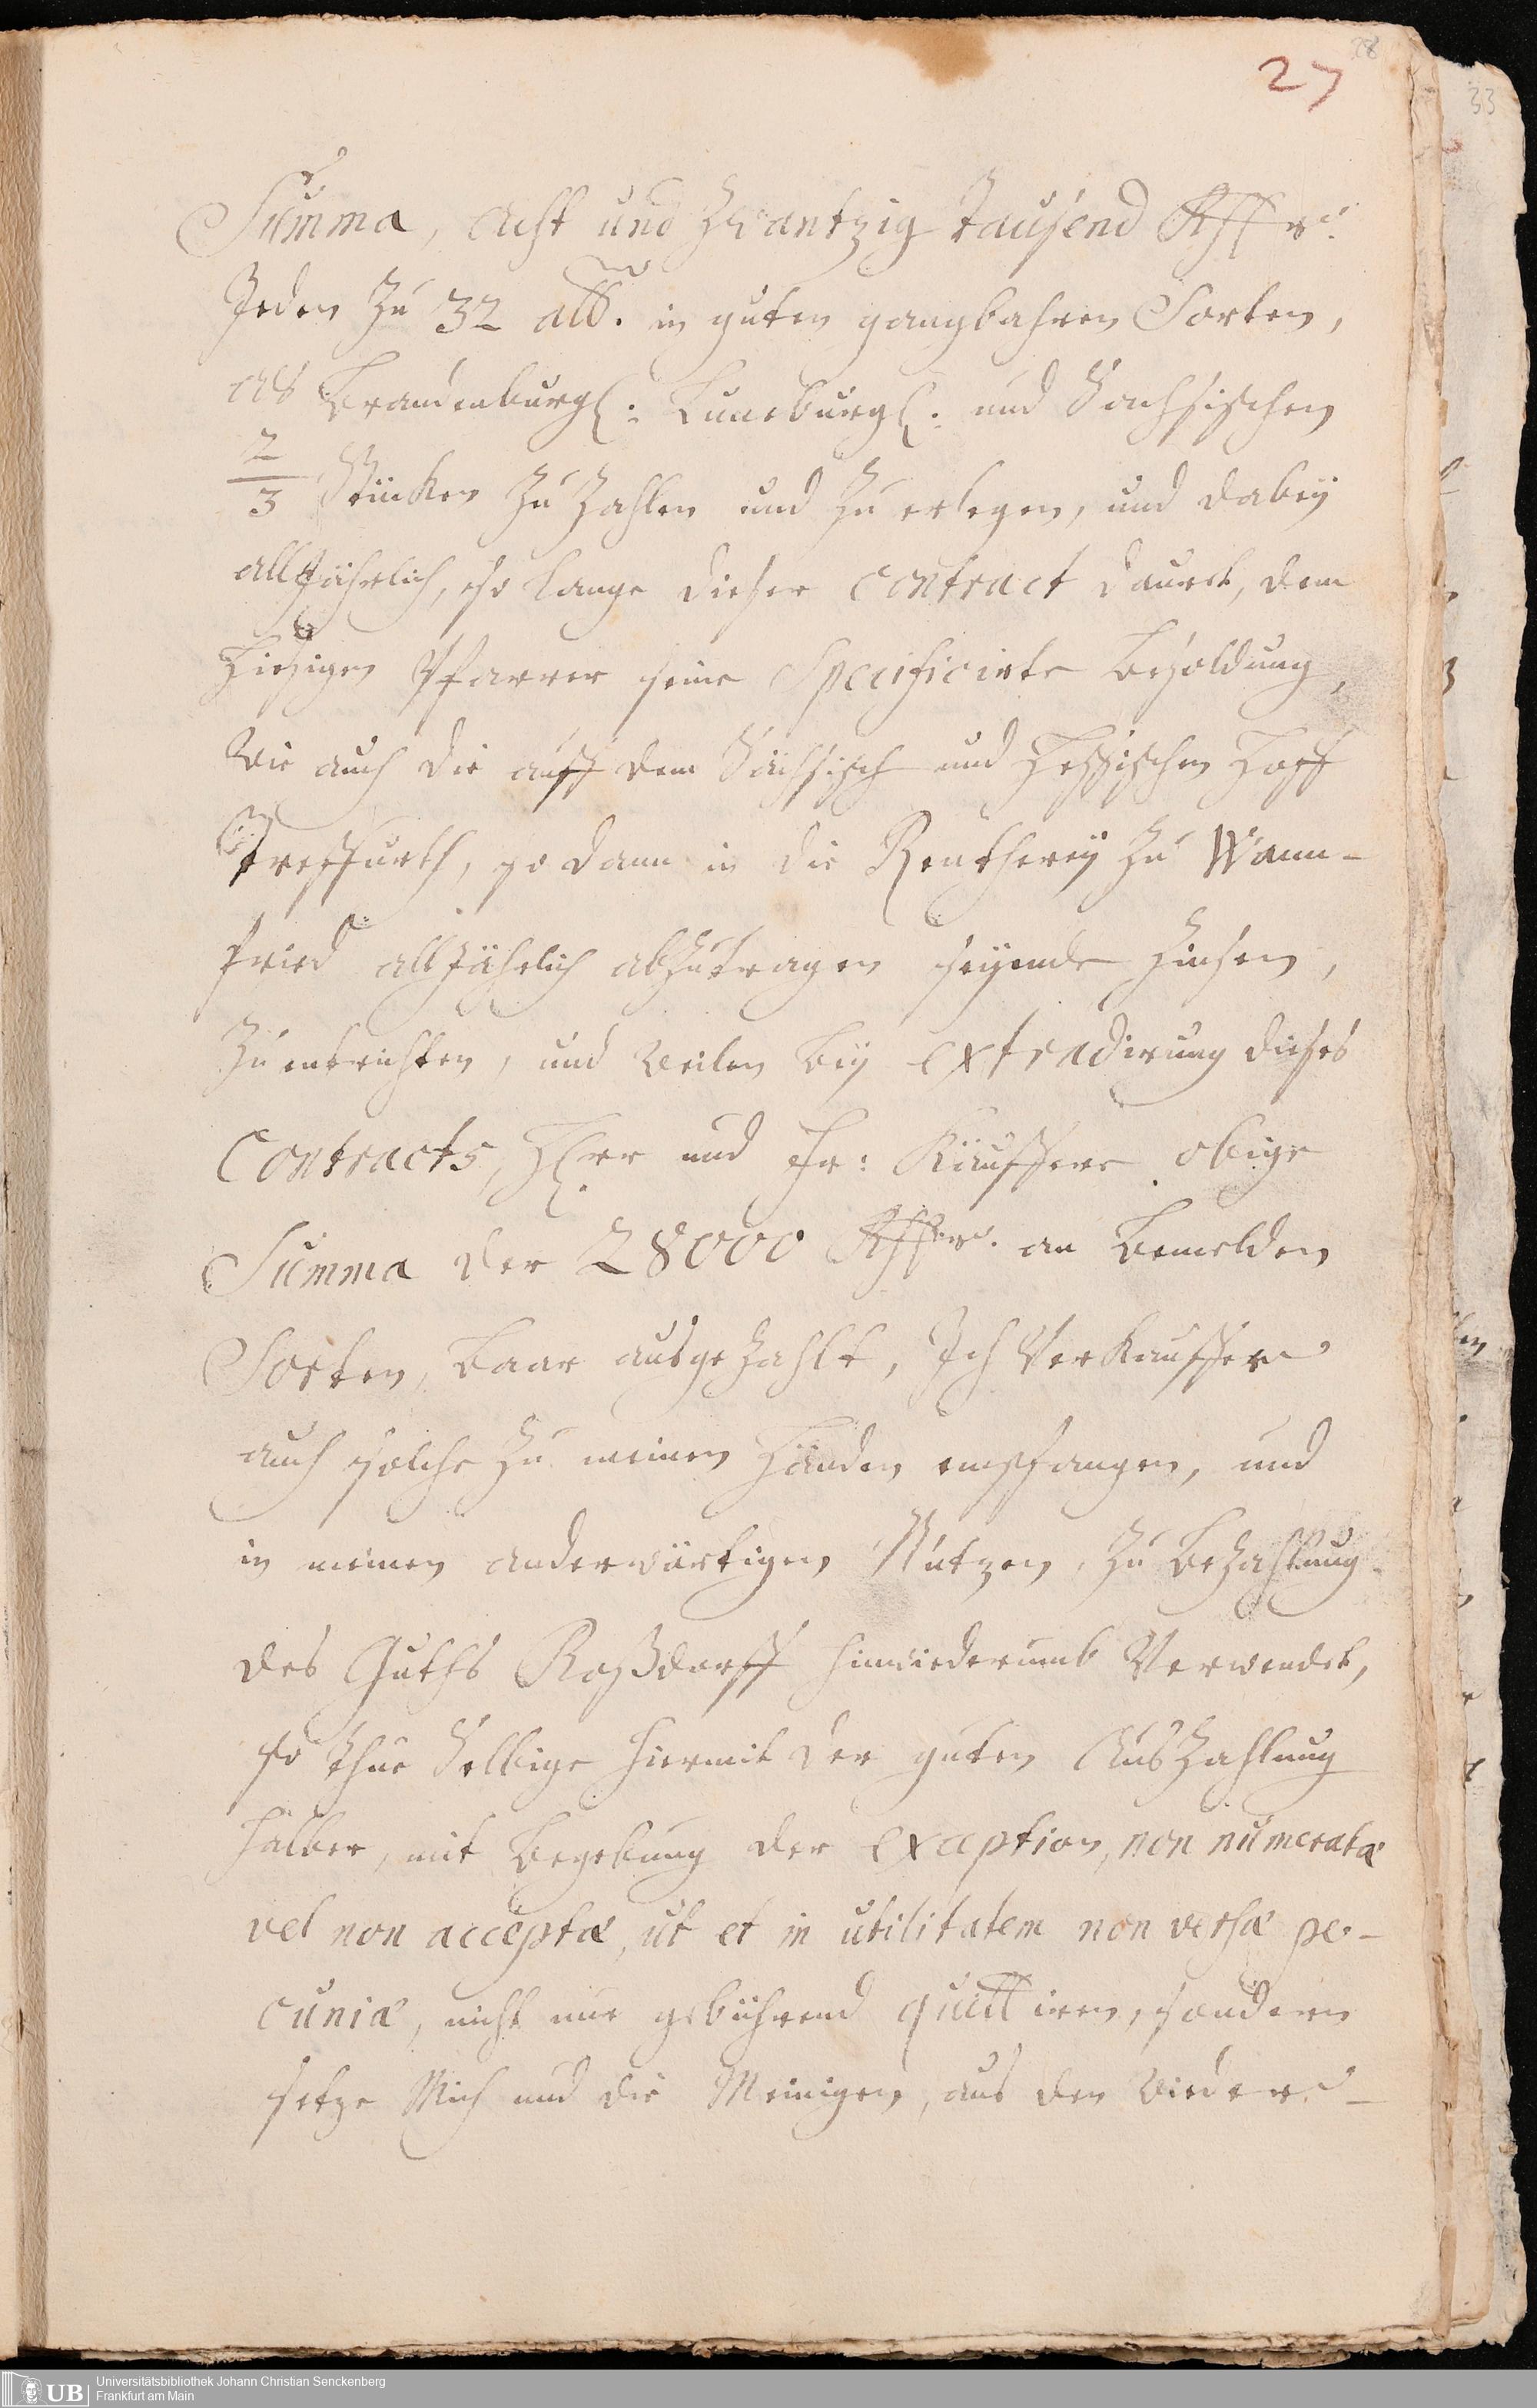 28
27
33
Summa, Acht und Zwantzig tausend Rthlr.
Jeden zu 32 alb. in guten gangbahren Sorten,
als Brandenburgl: Luneburgl: und Sachsischen
2/3 Stücken zu Zahlen und zu erlegen, und dabeÿ
allJährlich, so lange dieser Contract dauret, dem
hiesigen Pfarrer seine Specificirte Besoldung,
Wie auch die auff dem Sächsisch und Hessischen Hoff
Treffurth, so dann in die Rentherey zu Wann-
fried allJährlich abzutragen seÿende Zinsen,
Zu entrichten, und weilen beÿ extradirung dieses
Contracts, Herr und Fr: Käuffere obige
Summa der 28000 Rthlr. an bemelden
Sorten, baar ausgezahlt, Ich Verkauffer
auch solche zu meinen Händen empfangen, und
in meinen anderwärtigen Nutzen, zu Bezahlung
des Guths Roßdorff hinwiederumb Verwendet,
so thue Selbige hiermit der guten AusZahlung
halber, mit begebung der exception, non numeratæ
vel non acceptæ, ut et in utilitatem non versæ pe-
cuniæ, nicht nur gebührend quittiren, sondern
setze Mich und die Meinigen, aus den Wieder-
UB
Universitätsbibliothek Johann Christian Senckenberg
Frankfurt am Main